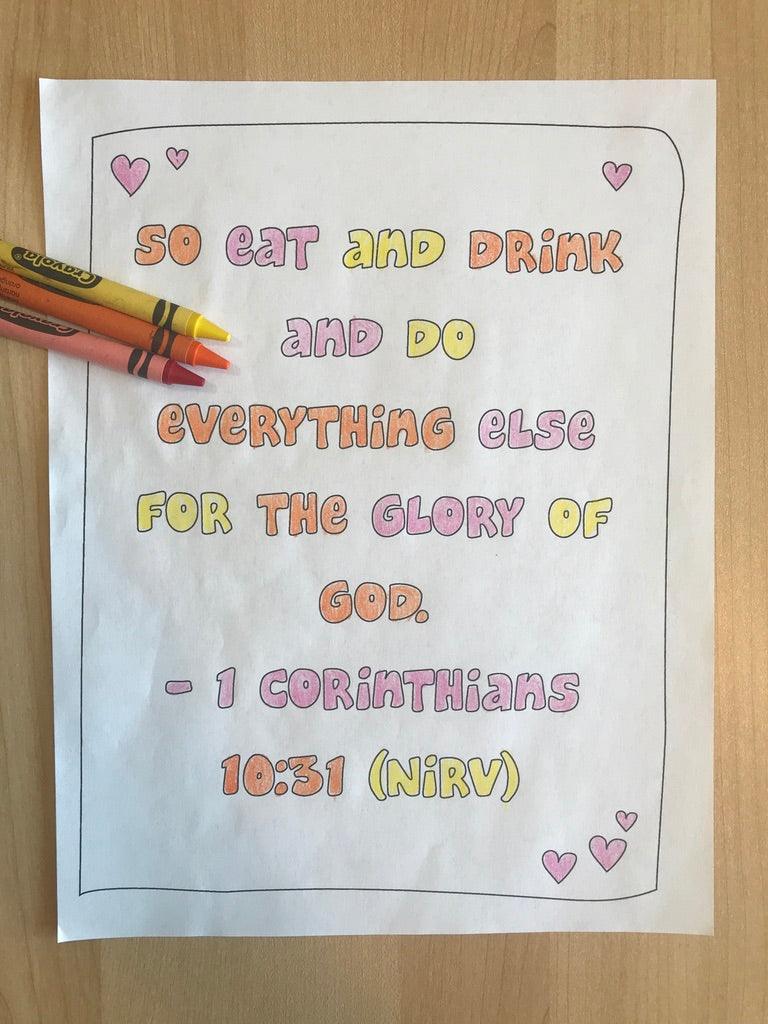 SO eaT anD DRinK
anD DO
eVeRYTHinG eLSe
FOR THe GLORY OF
GOD.
- 1 CORinTHians
10:31 (NiRV)
Crayola
Crayola